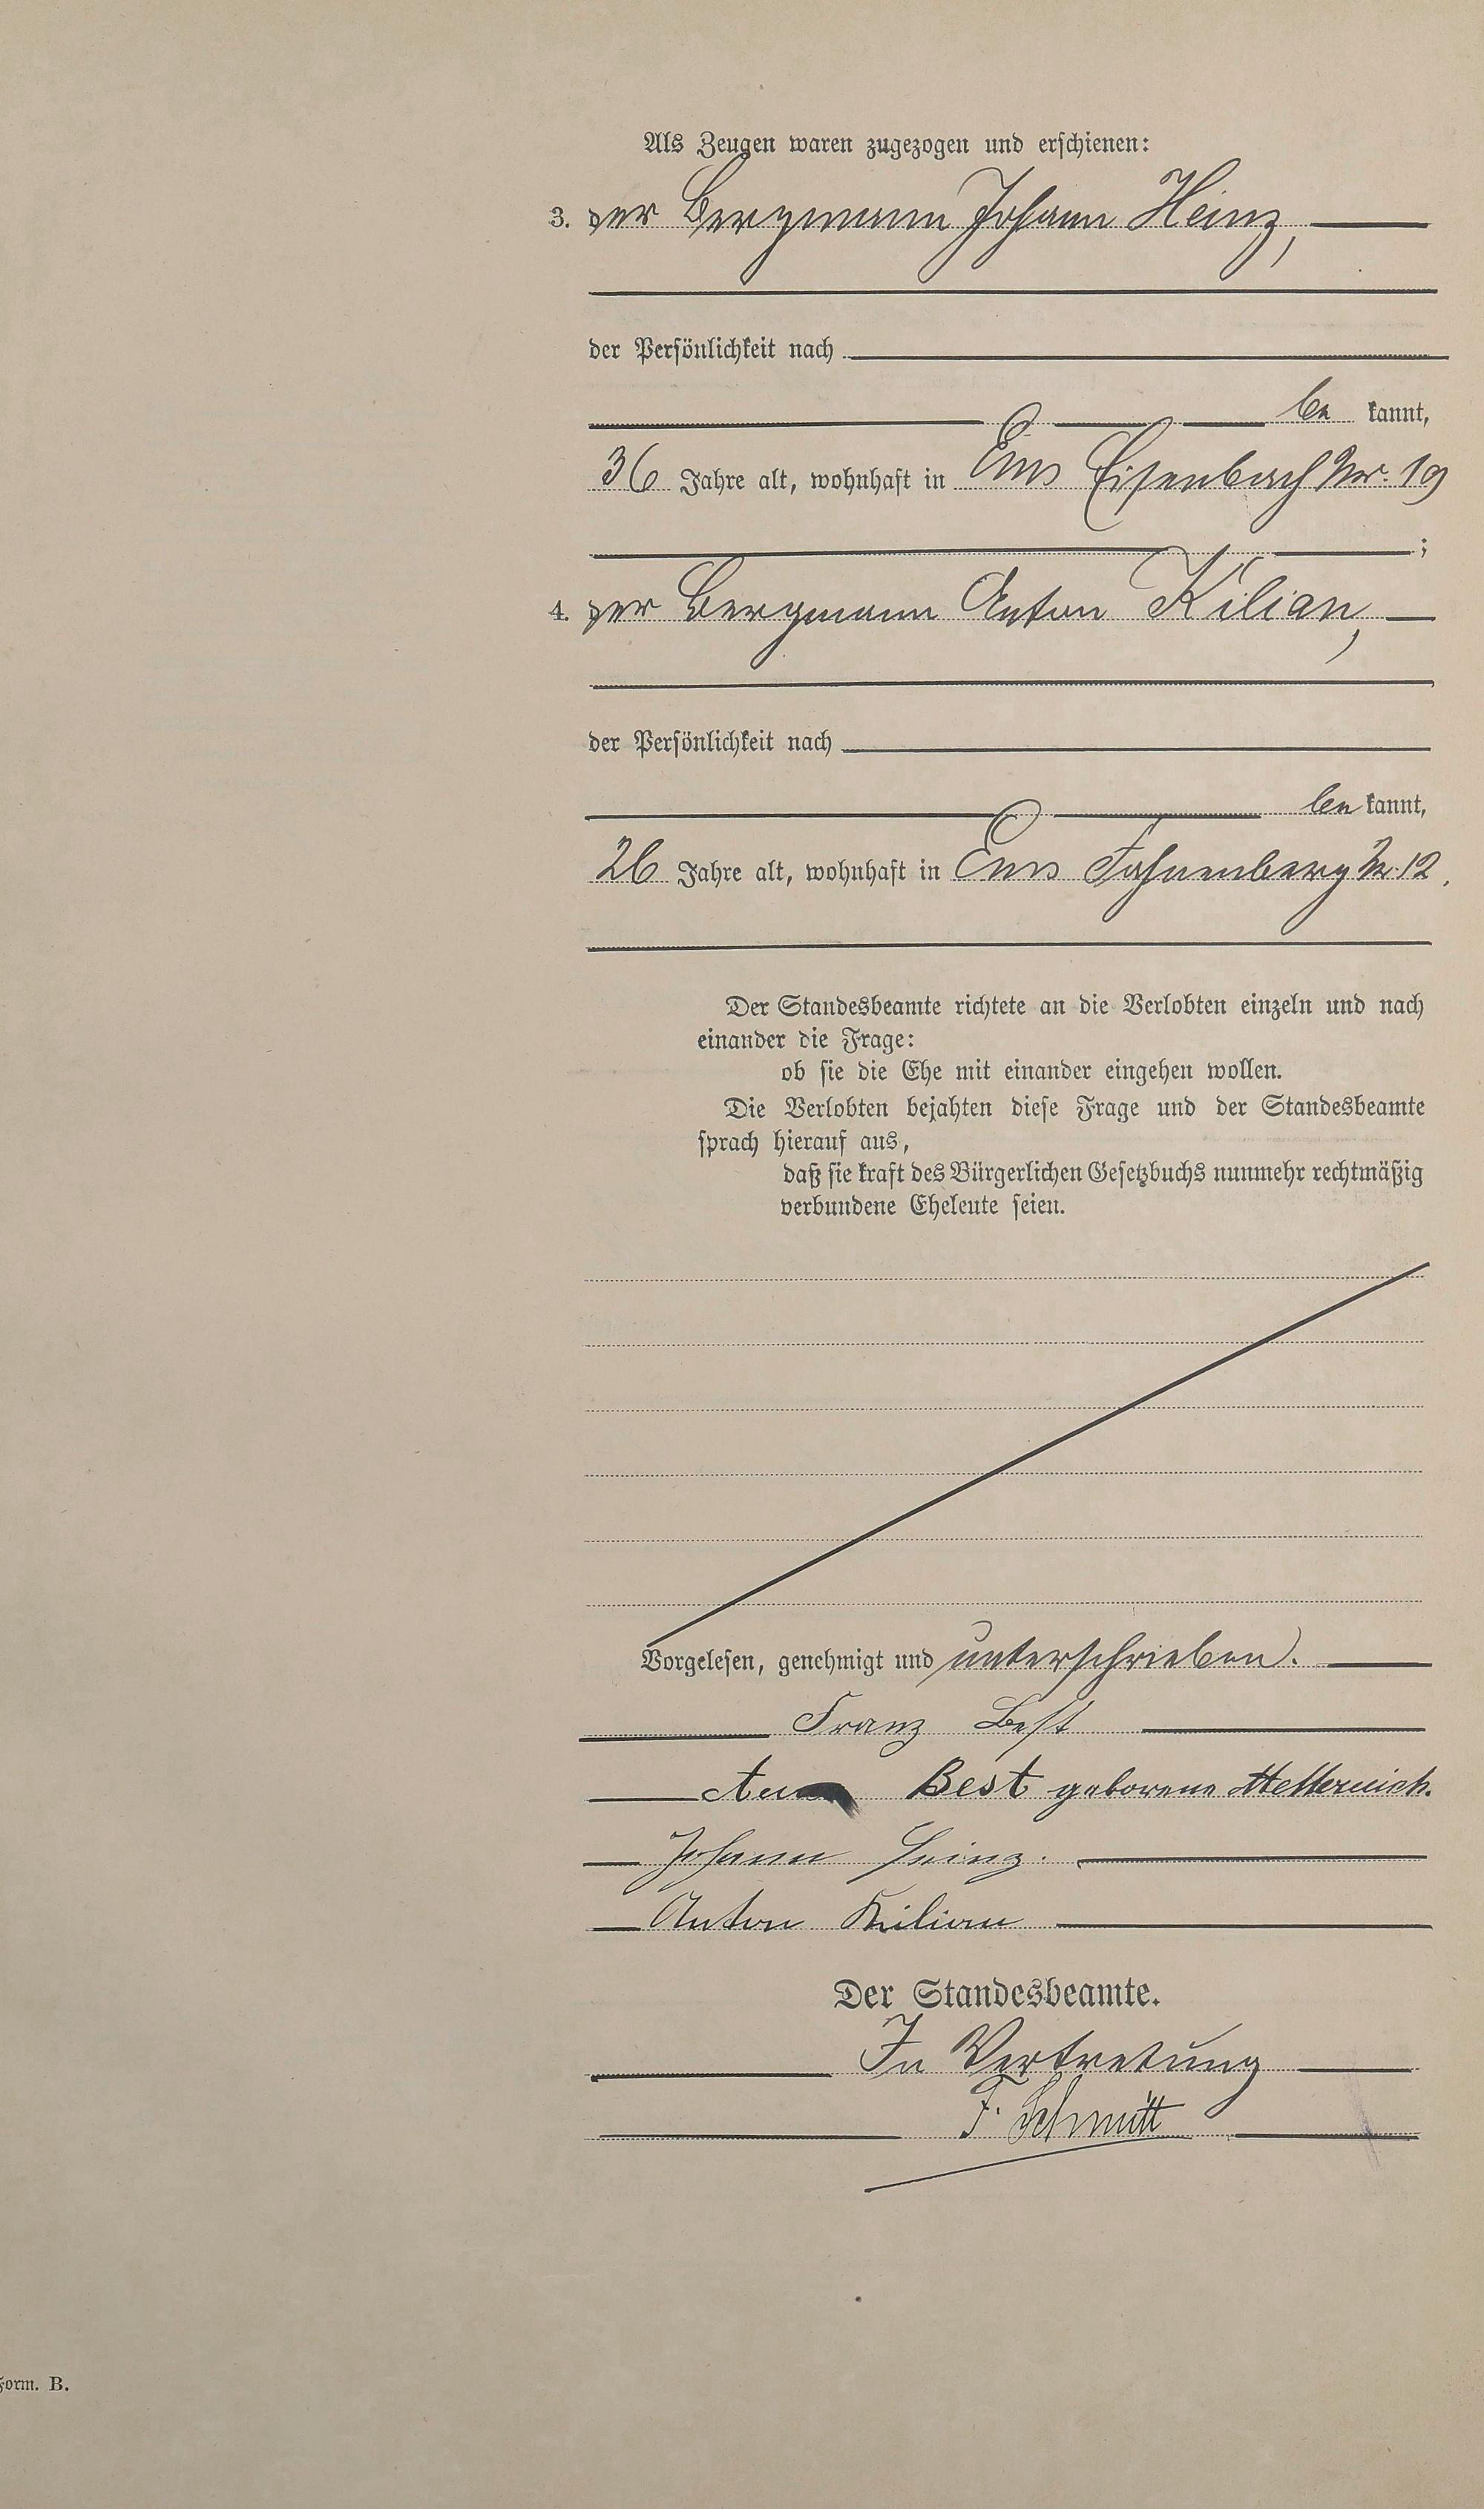 Als Zeugen waren zugezogen und erschienen:
3. der Bergmann Johann Heinz,
der Persönlichkeit nach
be kannt,
36 Jahre alt, wohnhaft in Ems Eisenbach Nr. 19
;
4. der Bergmann Anton Kilian,
der Persönlichkeit nach
be kannt,
26 Jahre alt, wohnhaft in Ems Fahnenberg Nr. 12.
Der Standesbeamte richtete an die Verlobten einzeln und nach
einander die Frage:
ob sie die Ehe mit einander eingehen wollen.
Die Verlobten bejahten diese Frage und der Standesbeamte
sprach hierauf aus,
daß sie kraft des Bürgerlichen Gesetzbuchs nunmehr rechtmäßig
verbundene Eheleute seien.
Vorgelesen, genehmigt und unterschrieben.
Franz Best
Anna Best geborene Metternich.
Johann Heinz.
Anton Kilian
Der Standesbeamte.
In Vertretung
F. Schmitt
Form. B.